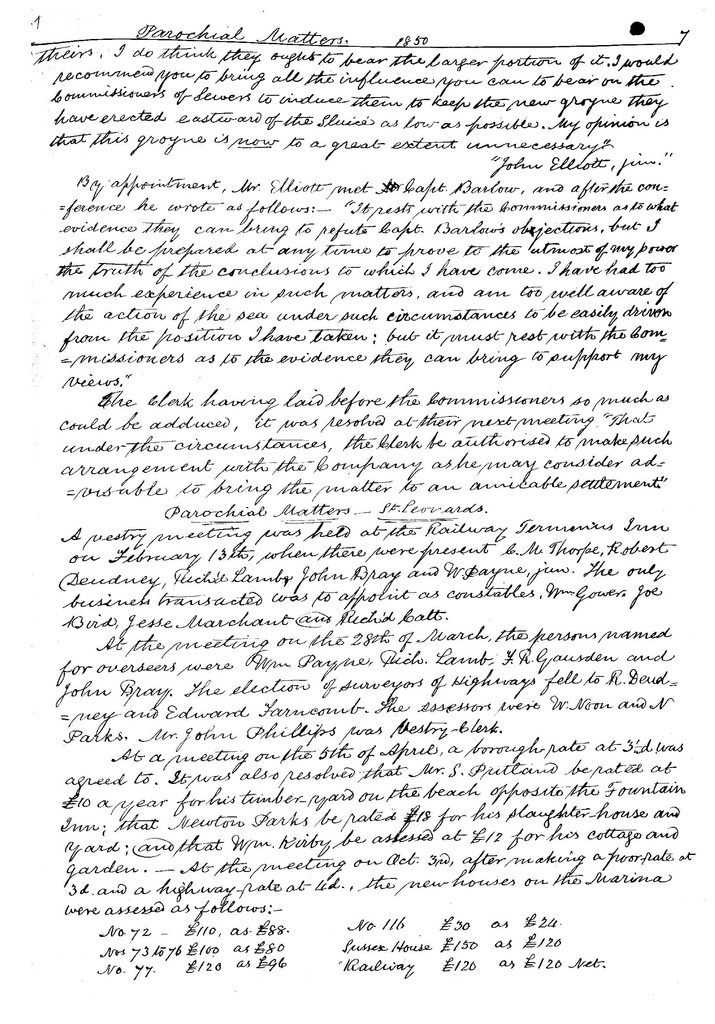 Parochial Matters. 1850 7
theirs, I do think they ought to bear the larger portion of it. I would
recommend you to bring all the influence you can to bear on the
Commissioners of Sewers to induce them to keep the new groyne they
have erected eastward of the Sluice as low as possible. My opinion is
that this groyne is now to a great extent unnecessary."
"John Elliott, jun."
By appointment, Mr. Elliott met Capt. Barlow, and after the con-
=ference he wrote as follows:- "It rests with the Commissioners as to what
evidence they can bring to refute Capt. Barlow's objections, but I
shall be prepared at any time to prove to the utmost of my power
the truth of the conclusions to which I have come. I have had too
much experience in such matters, and am too well aware of
the action of the sea under such circumstances to be easily driven
from the position I have taken; but it must rest with the Com=
=missioners as to the evidence they can bring to support my
views."
The Clerk having laid before the Commissioners so much as
could be adduced, it was resolved at their next meeting "That
under the circumstances, the Clerk be authorised to make such
arrangement with the Company as he may consider ad-
=visable to bring the matter to an amicable settlement"
Parochial Matters - St. Leonards.
A vestry meeting was held at the Railway Terminus Inn
on February 13th, when there were present C. M. Thorpe, Robert
Deudney, Rich'd Lamb, John Bray and W. Payne, jun. The only
business transacted was to appoint as constables, Wm Gower, Joe
Bird, Jesse Marchant and Rich'd Catt.
At the meeting on the 28th of March, the persons named
for overseers were Wm Payne, Rich. Lamb, F. R. Gausden and
John Bray. The election of surveyors of Highways fell to R. Deud=
=ney and Edward Farncomb. The assessors were W. Noon and N
Parks. Mr. John Phillips was Vestry-Clerk.
At a meeting on the 5th of April, a borough-rate at 3½d was
agreed to. It was also resolved that Mr. S. Putland be rated at
£10 a year for his timber-yard on the beach opposite the Fountain
Inn; that Newton Parks be rated £18 for his slaughter-house and
yard; and that Wm. Kirby be assessed at £12 for his cottage and
garden. - At the meeting on Oct. 3rd, after making a poor-rate at
3d. and a highway-rate at 4d., the new houses on the Marina
were assessed as follows:-
No 72 - £110, as £88. No 116 £30 as £24.
Nos 73 to 76 £100 as £80 Sussex House £150 as £120
No. 77. £120 as £96 Railway £120 as £120 Net.